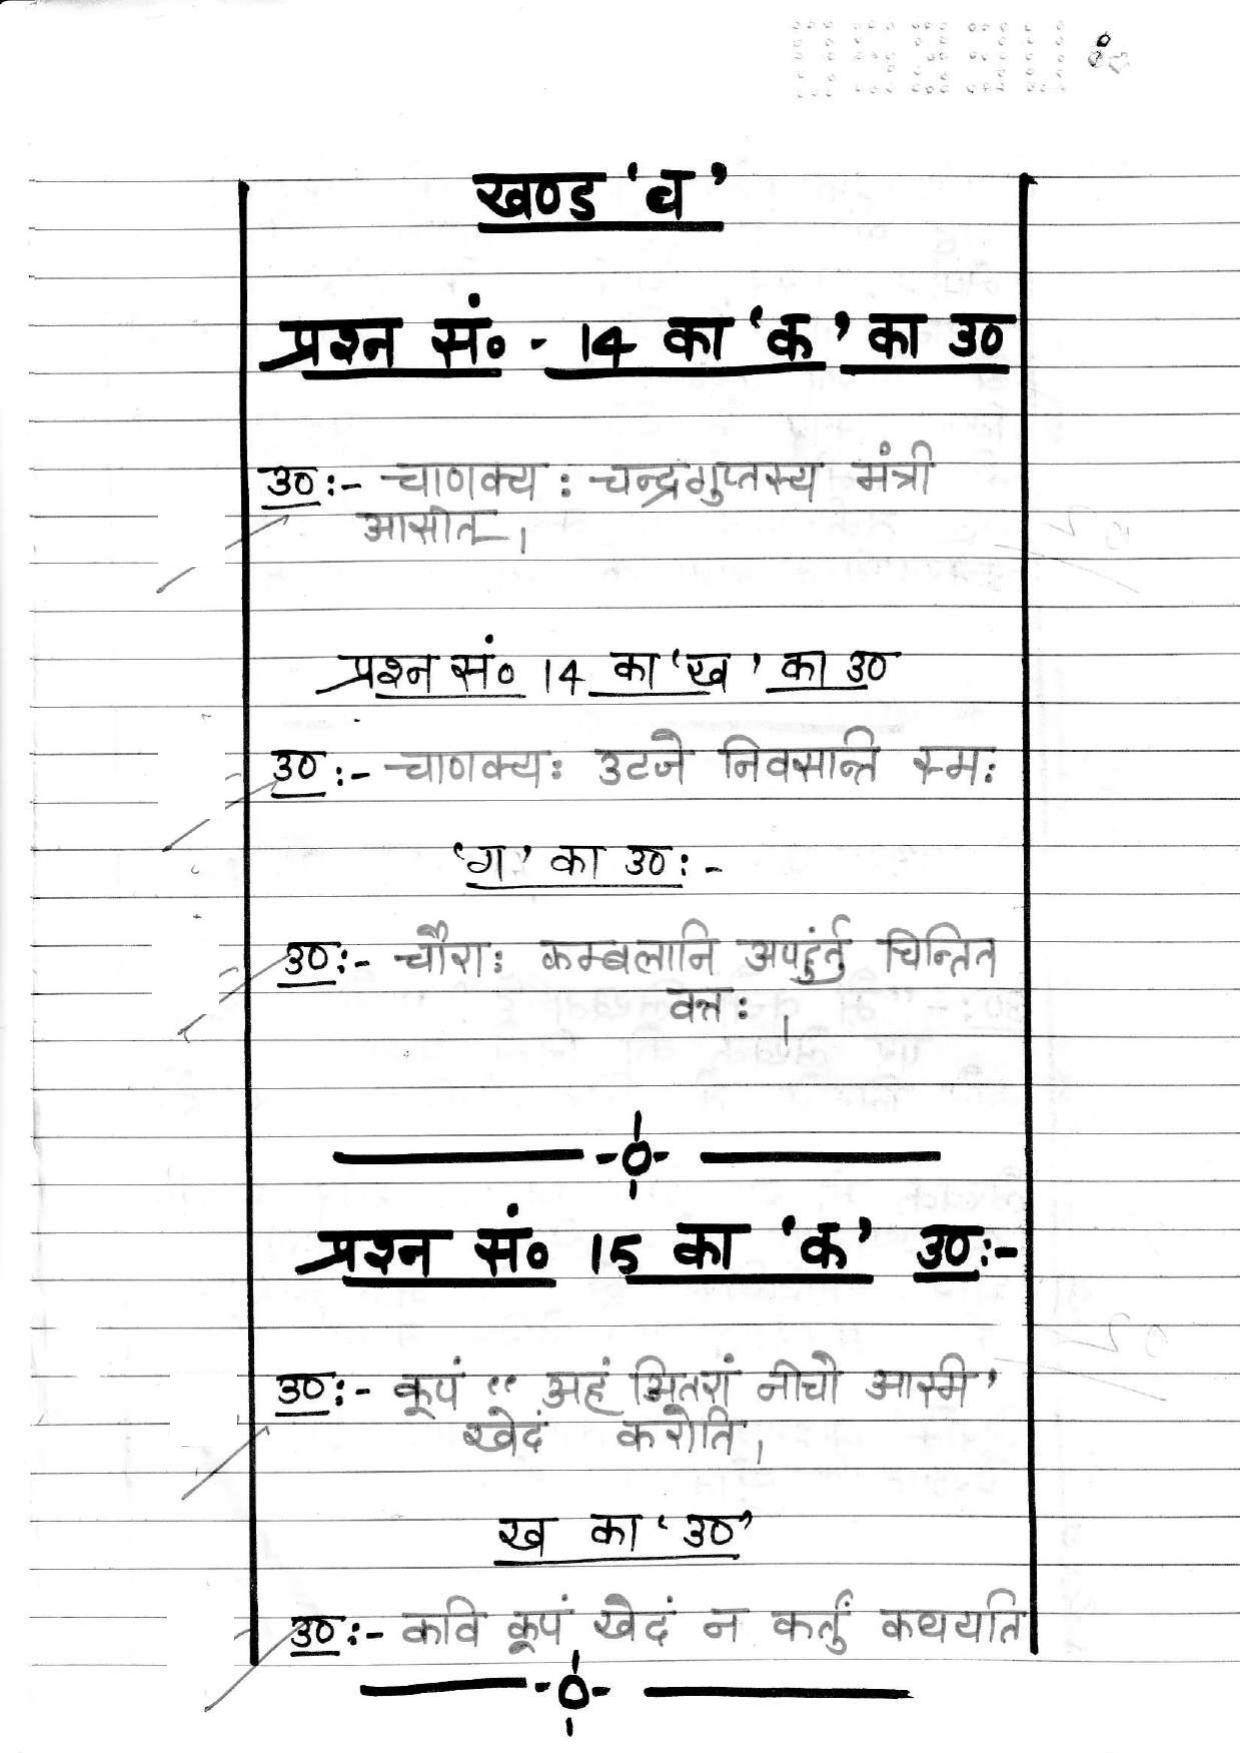 खण्ड 'ब'
प्रश्न सं० - 14 का 'क' का उ०
उ० :- चाणक्य : चन्द्रगुप्तस्य मंत्री
आसीत् ।
प्रश्न सं० 14 का 'ख' का उ०
उ० :- चाणक्य: उटजे निवसान्ति स्म:
'ग' का उ० :-
उ० :- चौरा: कम्बलानि अपहुंर्तु चिन्तित
वन्त: ।
प्रश्न सं० 15 का 'क' उ० :-
उ० :- कूपं “ अहं नितरां नीचो आस्मि '
खेदं करोति ।
ख का 'उ०'
उ० :- कवि कूपं खेदं न कर्तुं कथयति